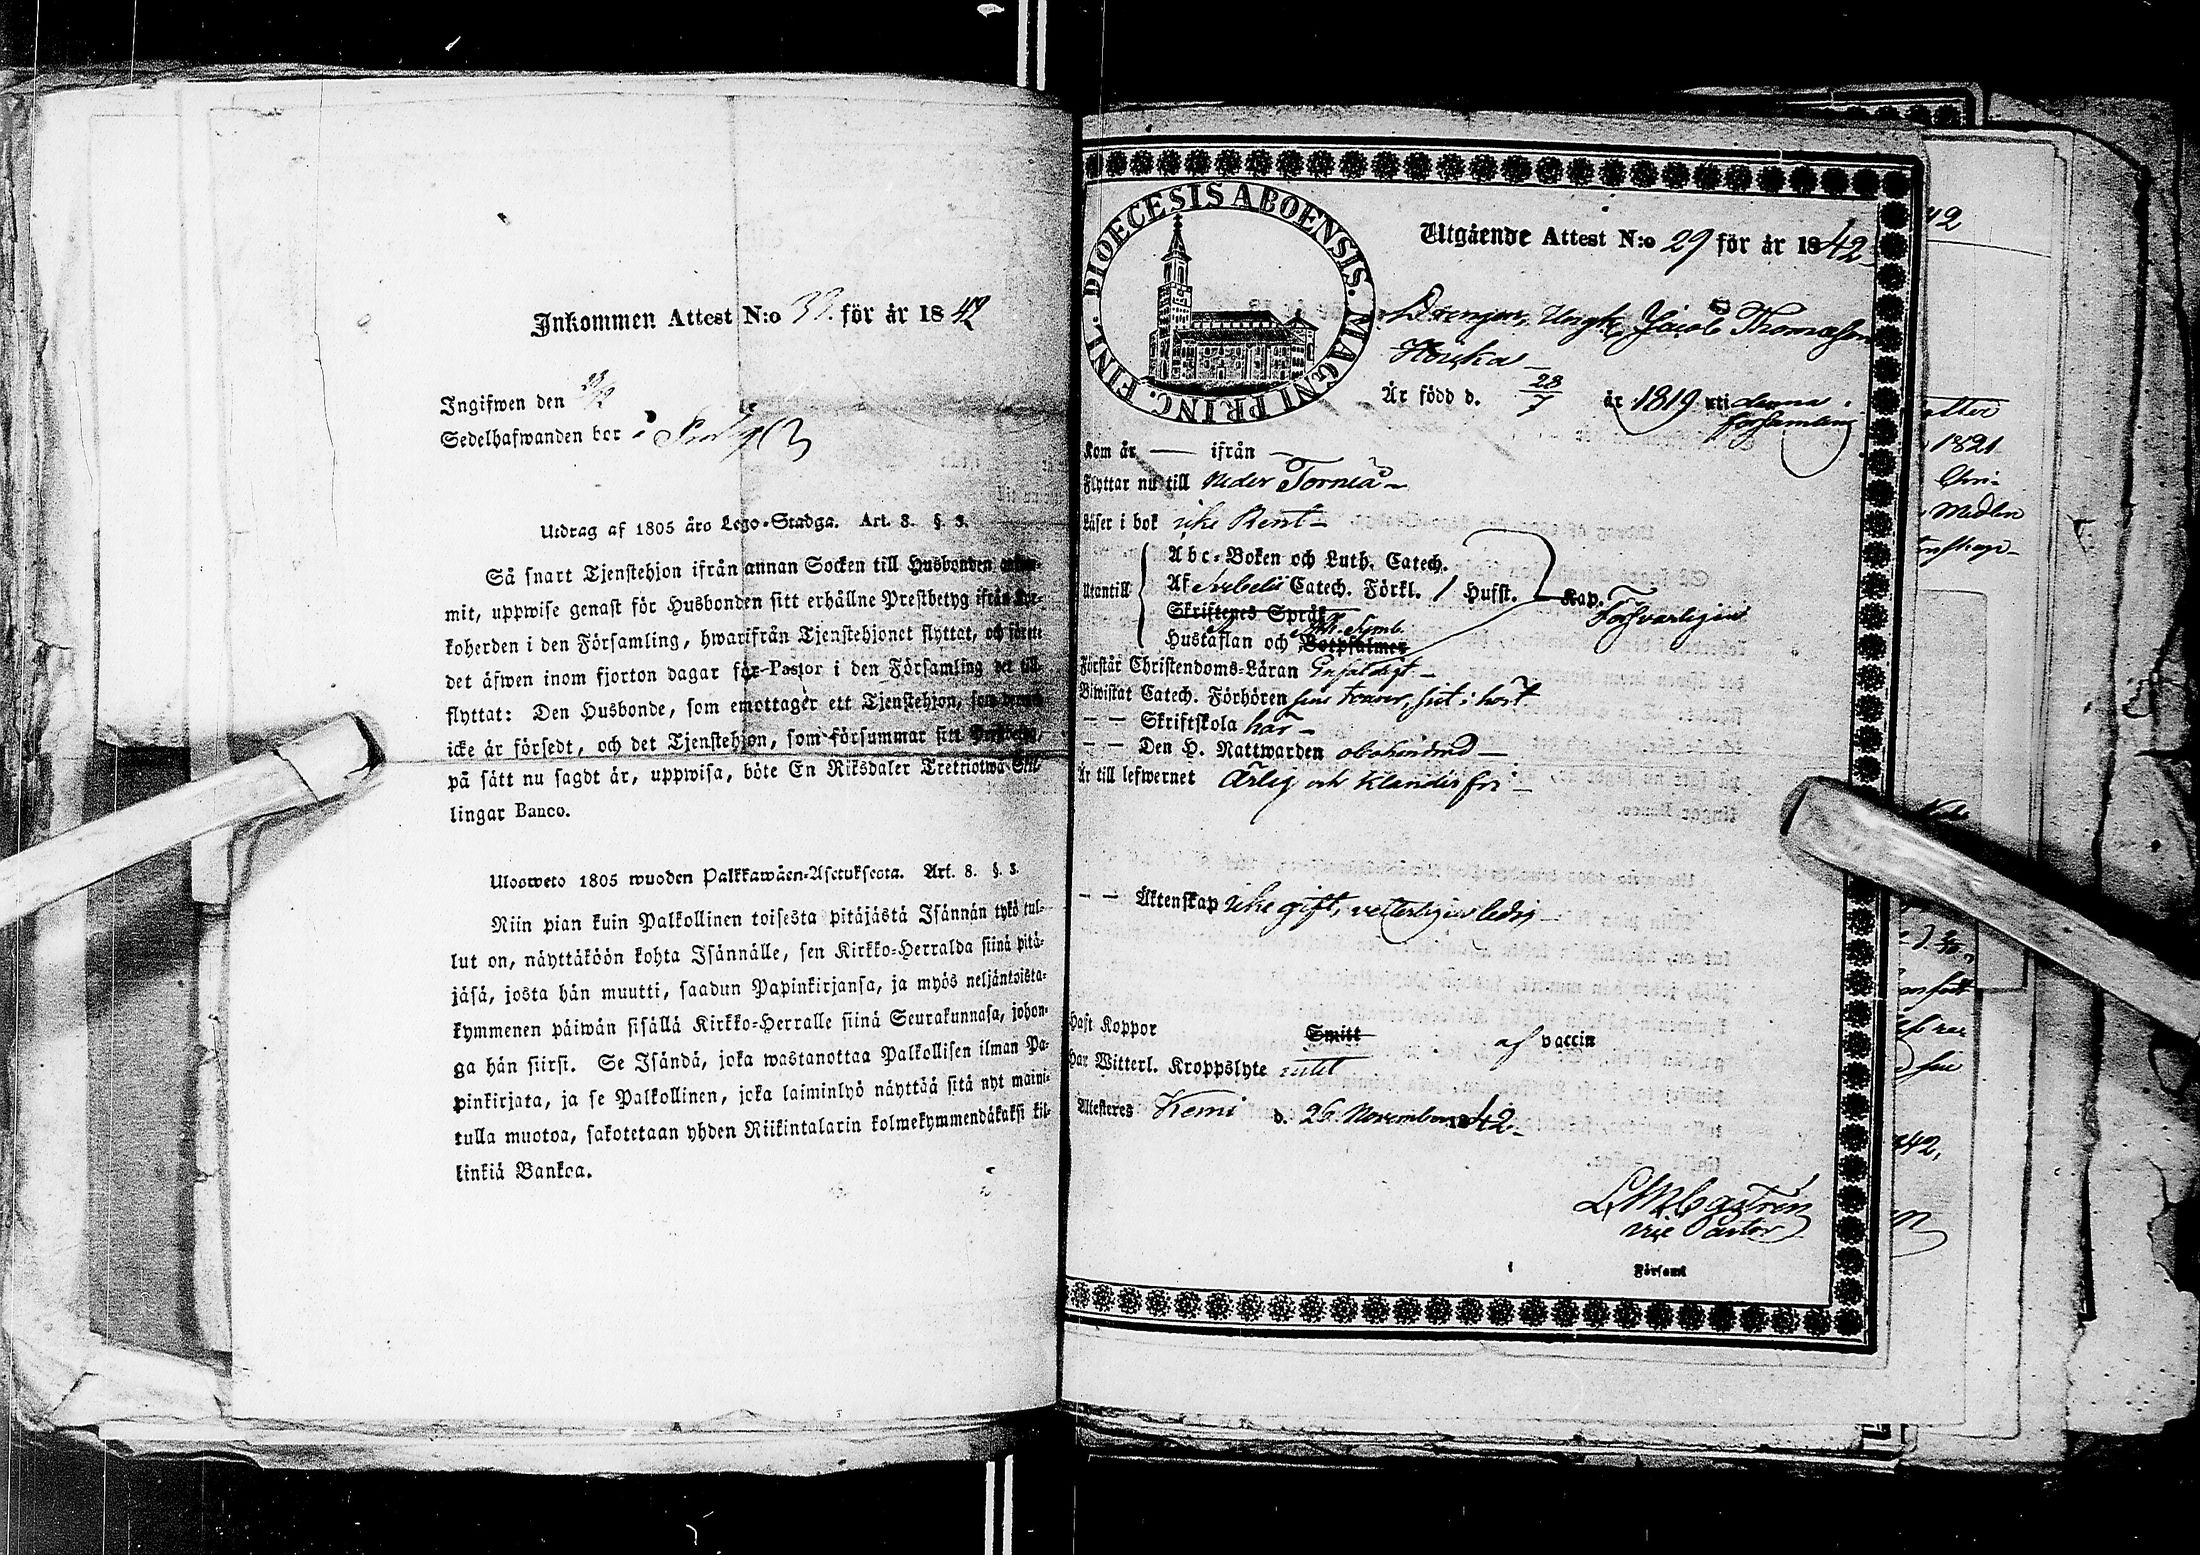 Inkommen Attest N:o 32. för år 1842
Ingifwen den
Sedelhafwanden bor i
Utdrag af 1805 års Lego-Stadga. Art. 8. §. 3.
Så snart Tjenstehjon ifrån annan Socken till Husbonden
mit, uppwise genast för Husbonden sitt erhållne Prestbetyg ifrån Kyr-
koherden i den Församling, hwarifrån Tjenstehjonet flyttat, och förete
det äfwen inom fjorton dagar för Pastor i den Församling det till
flyttat: Den Husbonde, som emottager ett Tjenstehjon, som dermed
icke är försedt, och det Tjenstehjon, som försummar sitt Prestbetyg,
på sätt nu sagdt är, uppwisa, böte En Riksdaler Tretriotwå Skil-
lingar Banco.
Ulosweto 1805 wuoden Palkkawäen-Asetuksesta. Art. 8. §. 3.
Niin pian kuin Palkollinen toisesta pitäjästä Isännän tykö tul-
lut on, näyttäköön kohta Isännälle, sen Kirkko-Herralda siinä pitä-
jäsä, josta hän muutti, saadun Papinkirjansa, ja myös neljäntoista-
kymmenen päiwän sisällä Kirkko-Herralle siinä Seurakunnasa, johon-
ga hän siirsi. Se Isändä, joka wastanottaa Palkollisen ilman Pa-
pinkirjata, ja se Palkollinen, joka laiminlyö näyttää sitä nyt maini-
tulla muotoa, sakotetaan yhden Riikintalarin kolmekymmendäkaksi kil-
linkiä Bankoa.
DIOECESIS ABOENSIS. MAGNI PRINC. FINL.
Utgående Attest N:o 29 för år 1842
Drengen, Ungk. Jacob Thomasson
Houka
Är född d. 28/7 år 1819 uti denna
församling
Kom år — ifrån —
Flyttar nu till Neder Torneå
Läser i bok icke Rent
Abc-Boken och Luth. Catech.
Utantill Af Nebelii Catech. Förkl. / Husst. Kap. Försvarligen
Skriftenes Språk
Hustaflan och Ath. Symb. Botpsalmer
Förstår Christendoms-Läran Enfaldigt
Biwistat Catech. Förhören sine tourer, sist i höst
— — Skriftskola här
— — Den H. Nattwarden obehindrad
Är till lefwernet Ärlig och Klanderfri
— — Äktenskap icke gift, vetterligen ledig
Haft Koppor Smitt af vaccin
Har Witterl. Kroppslyte intet
Attesteres Kemi d. 26 November 1842
L M Castrén
vice Pastor
Församl
42
1821
Chri-
Medlen
42,